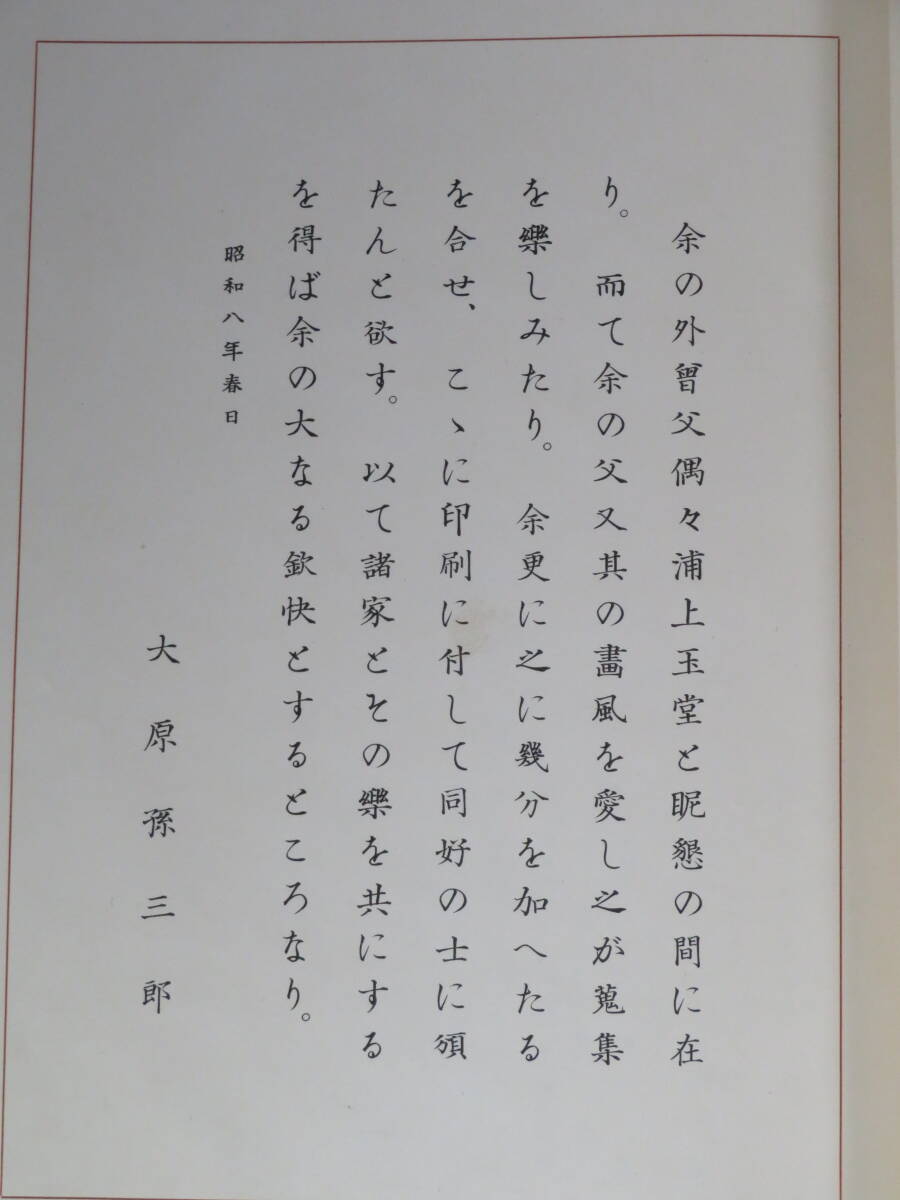 余の外曾父偶々浦上玉堂と昵懇の間に在
り。而て余の父又其の畵風を愛し之が蒐集
を樂しみたり。余更に之に幾分を加へたる
を合せ、こゝに印刷に付して同好の士に頒
たんと欲す。以て諸家とその樂を共にする
を得ば余の大なる欽快とするところなり。
昭和八年春日
大原孫三郎